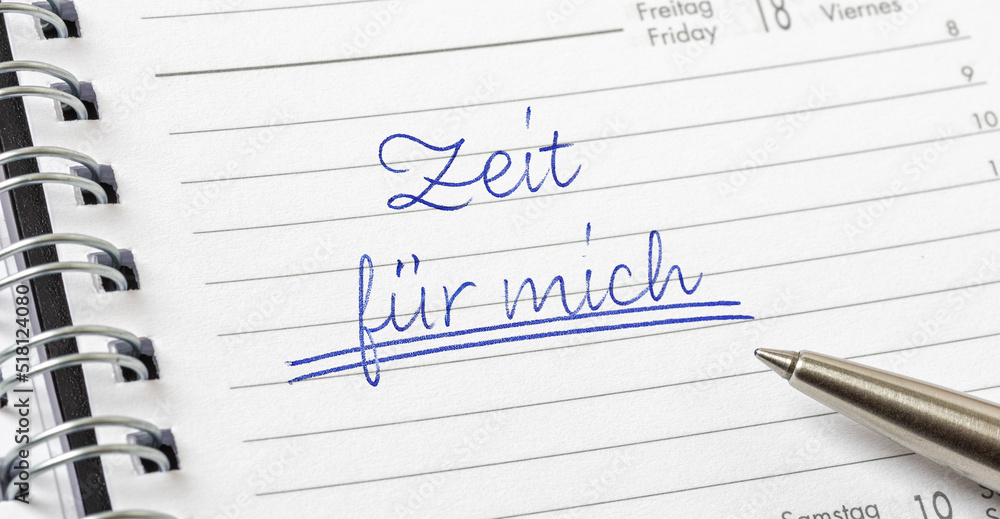 Freitag
Friday
18
Viernes
8
9
10
Zeit
für mich
Samstag
10
Adobe Stock | #518124080